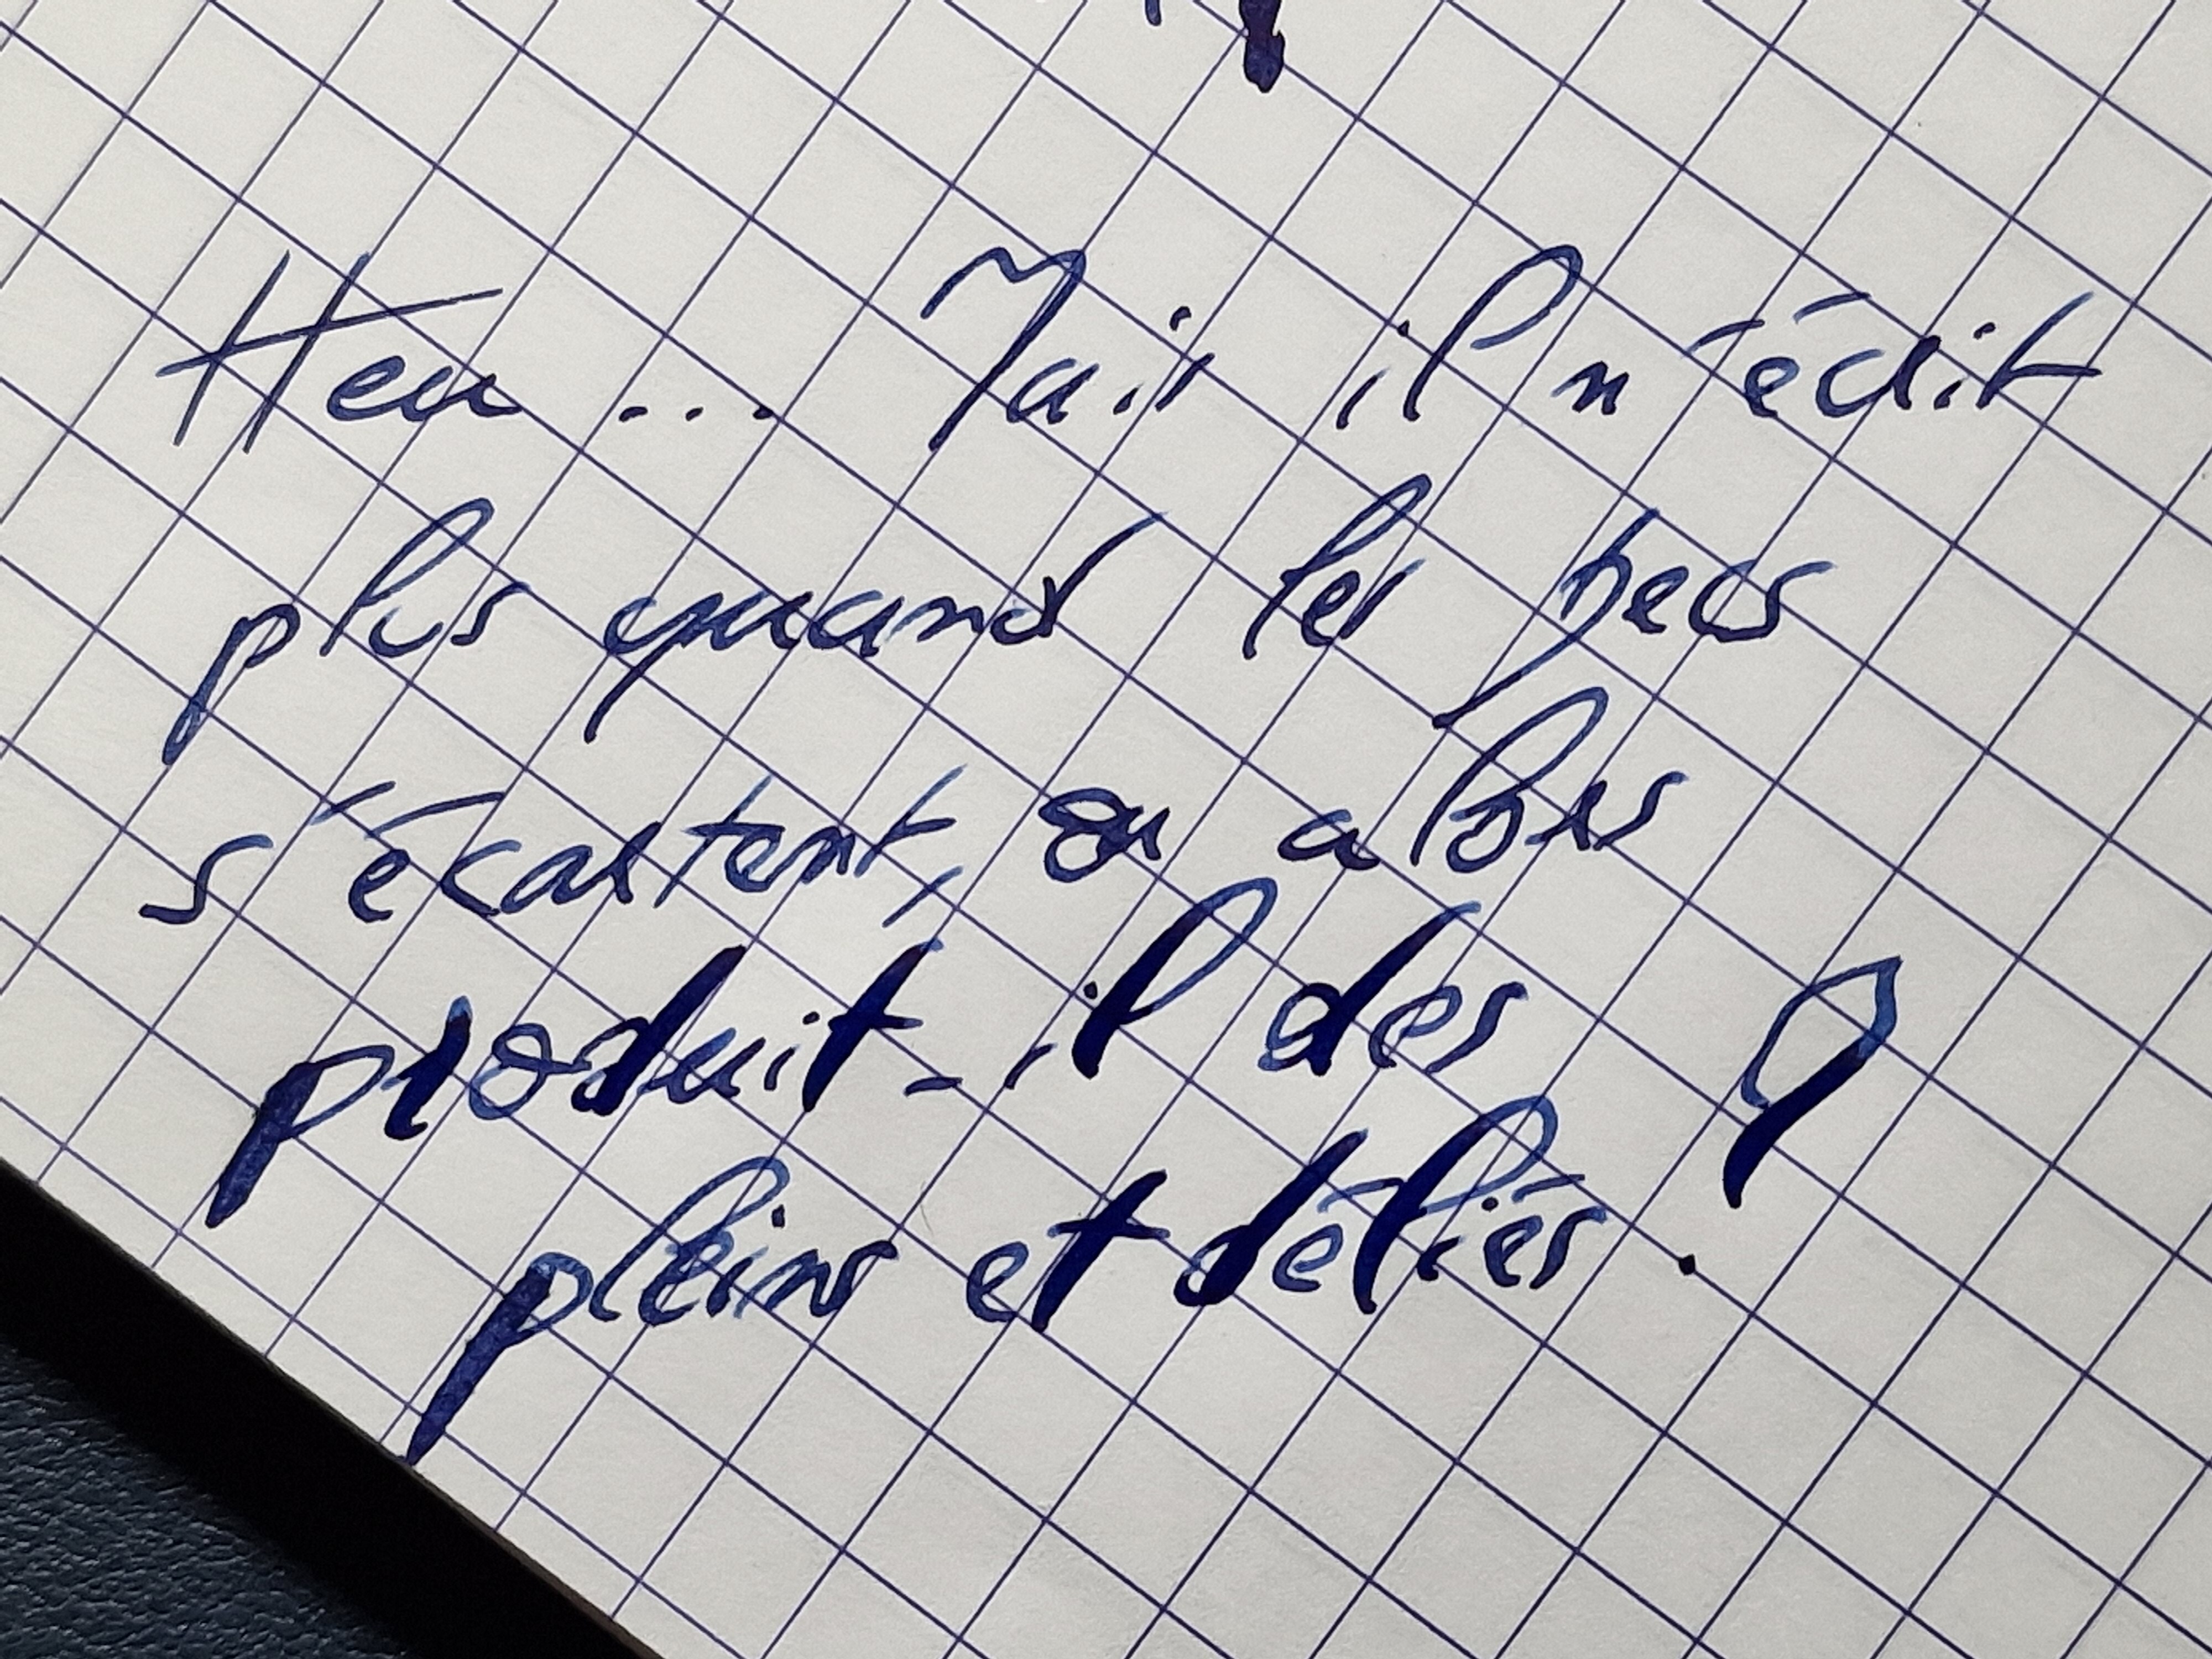 Heu ... Mais il n'écrit
plus quand les becs
s'écartent, ou alors
produit-il des
pleins et déliés ?